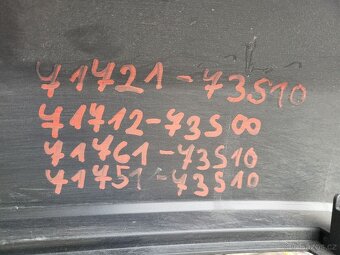 71721-73S10
71712-73S00
71761-73S10
71751-73S10